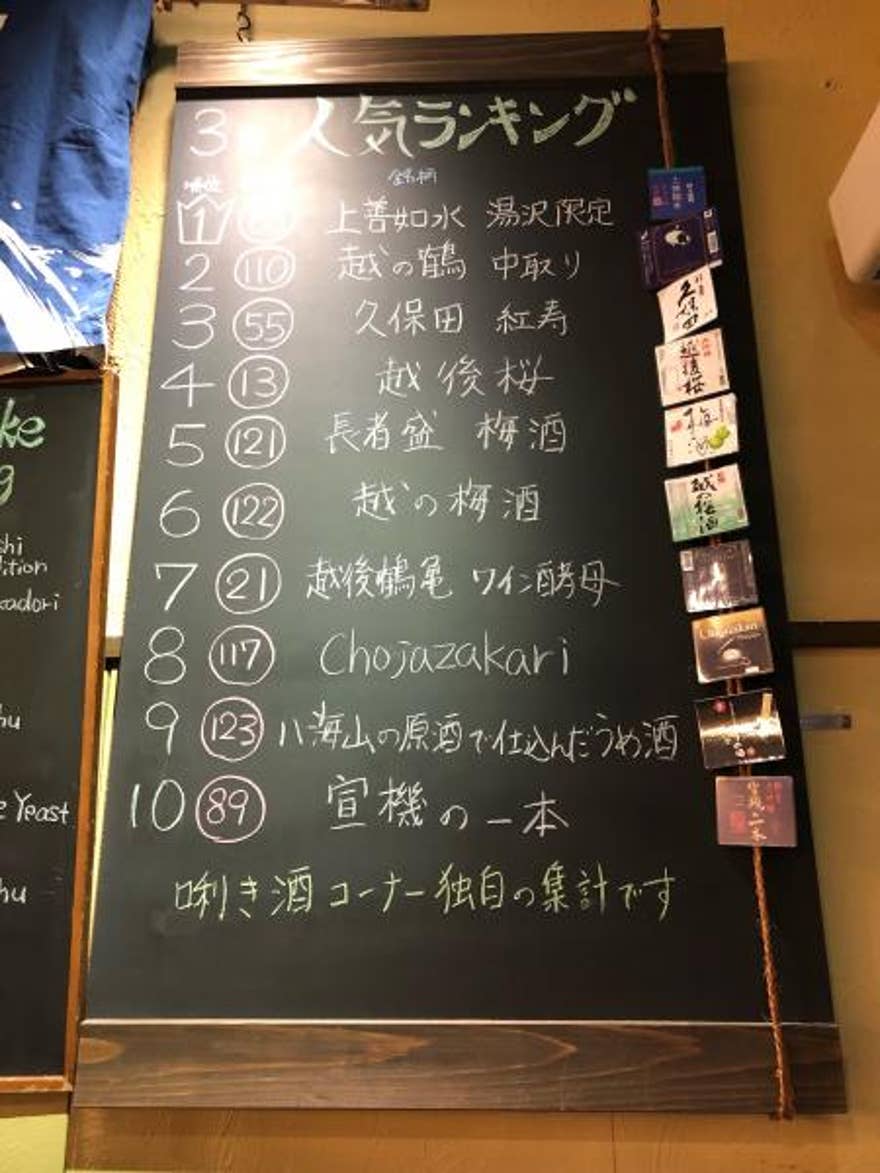 3 人気ランキング
銘柄
1 上善如水 湯沢限定
2 110 越の鶴 中取り
3 55 久保田 紅寿
4 13 越後桜
5 121 長者盛 梅酒
6 122 越の梅酒
7 21 越後鶴亀 ワイン酵母
8 117 Chojazakari
9 123 八海山の原酒で仕込んだうめ酒
10 89 宣機の一本
唎き酒コーナー独自の集計です
ke
g
hi
ition
adori
hu
e Yeast
hu
久保田
越後桜
梅酒
越の梅酒